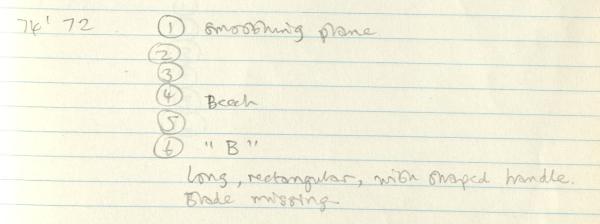 74' 72 ① smoothing plane
②
③
④ Beech
⑤
⑥ "B"
Long, rectangular, with shaped handle.
Blade missing.